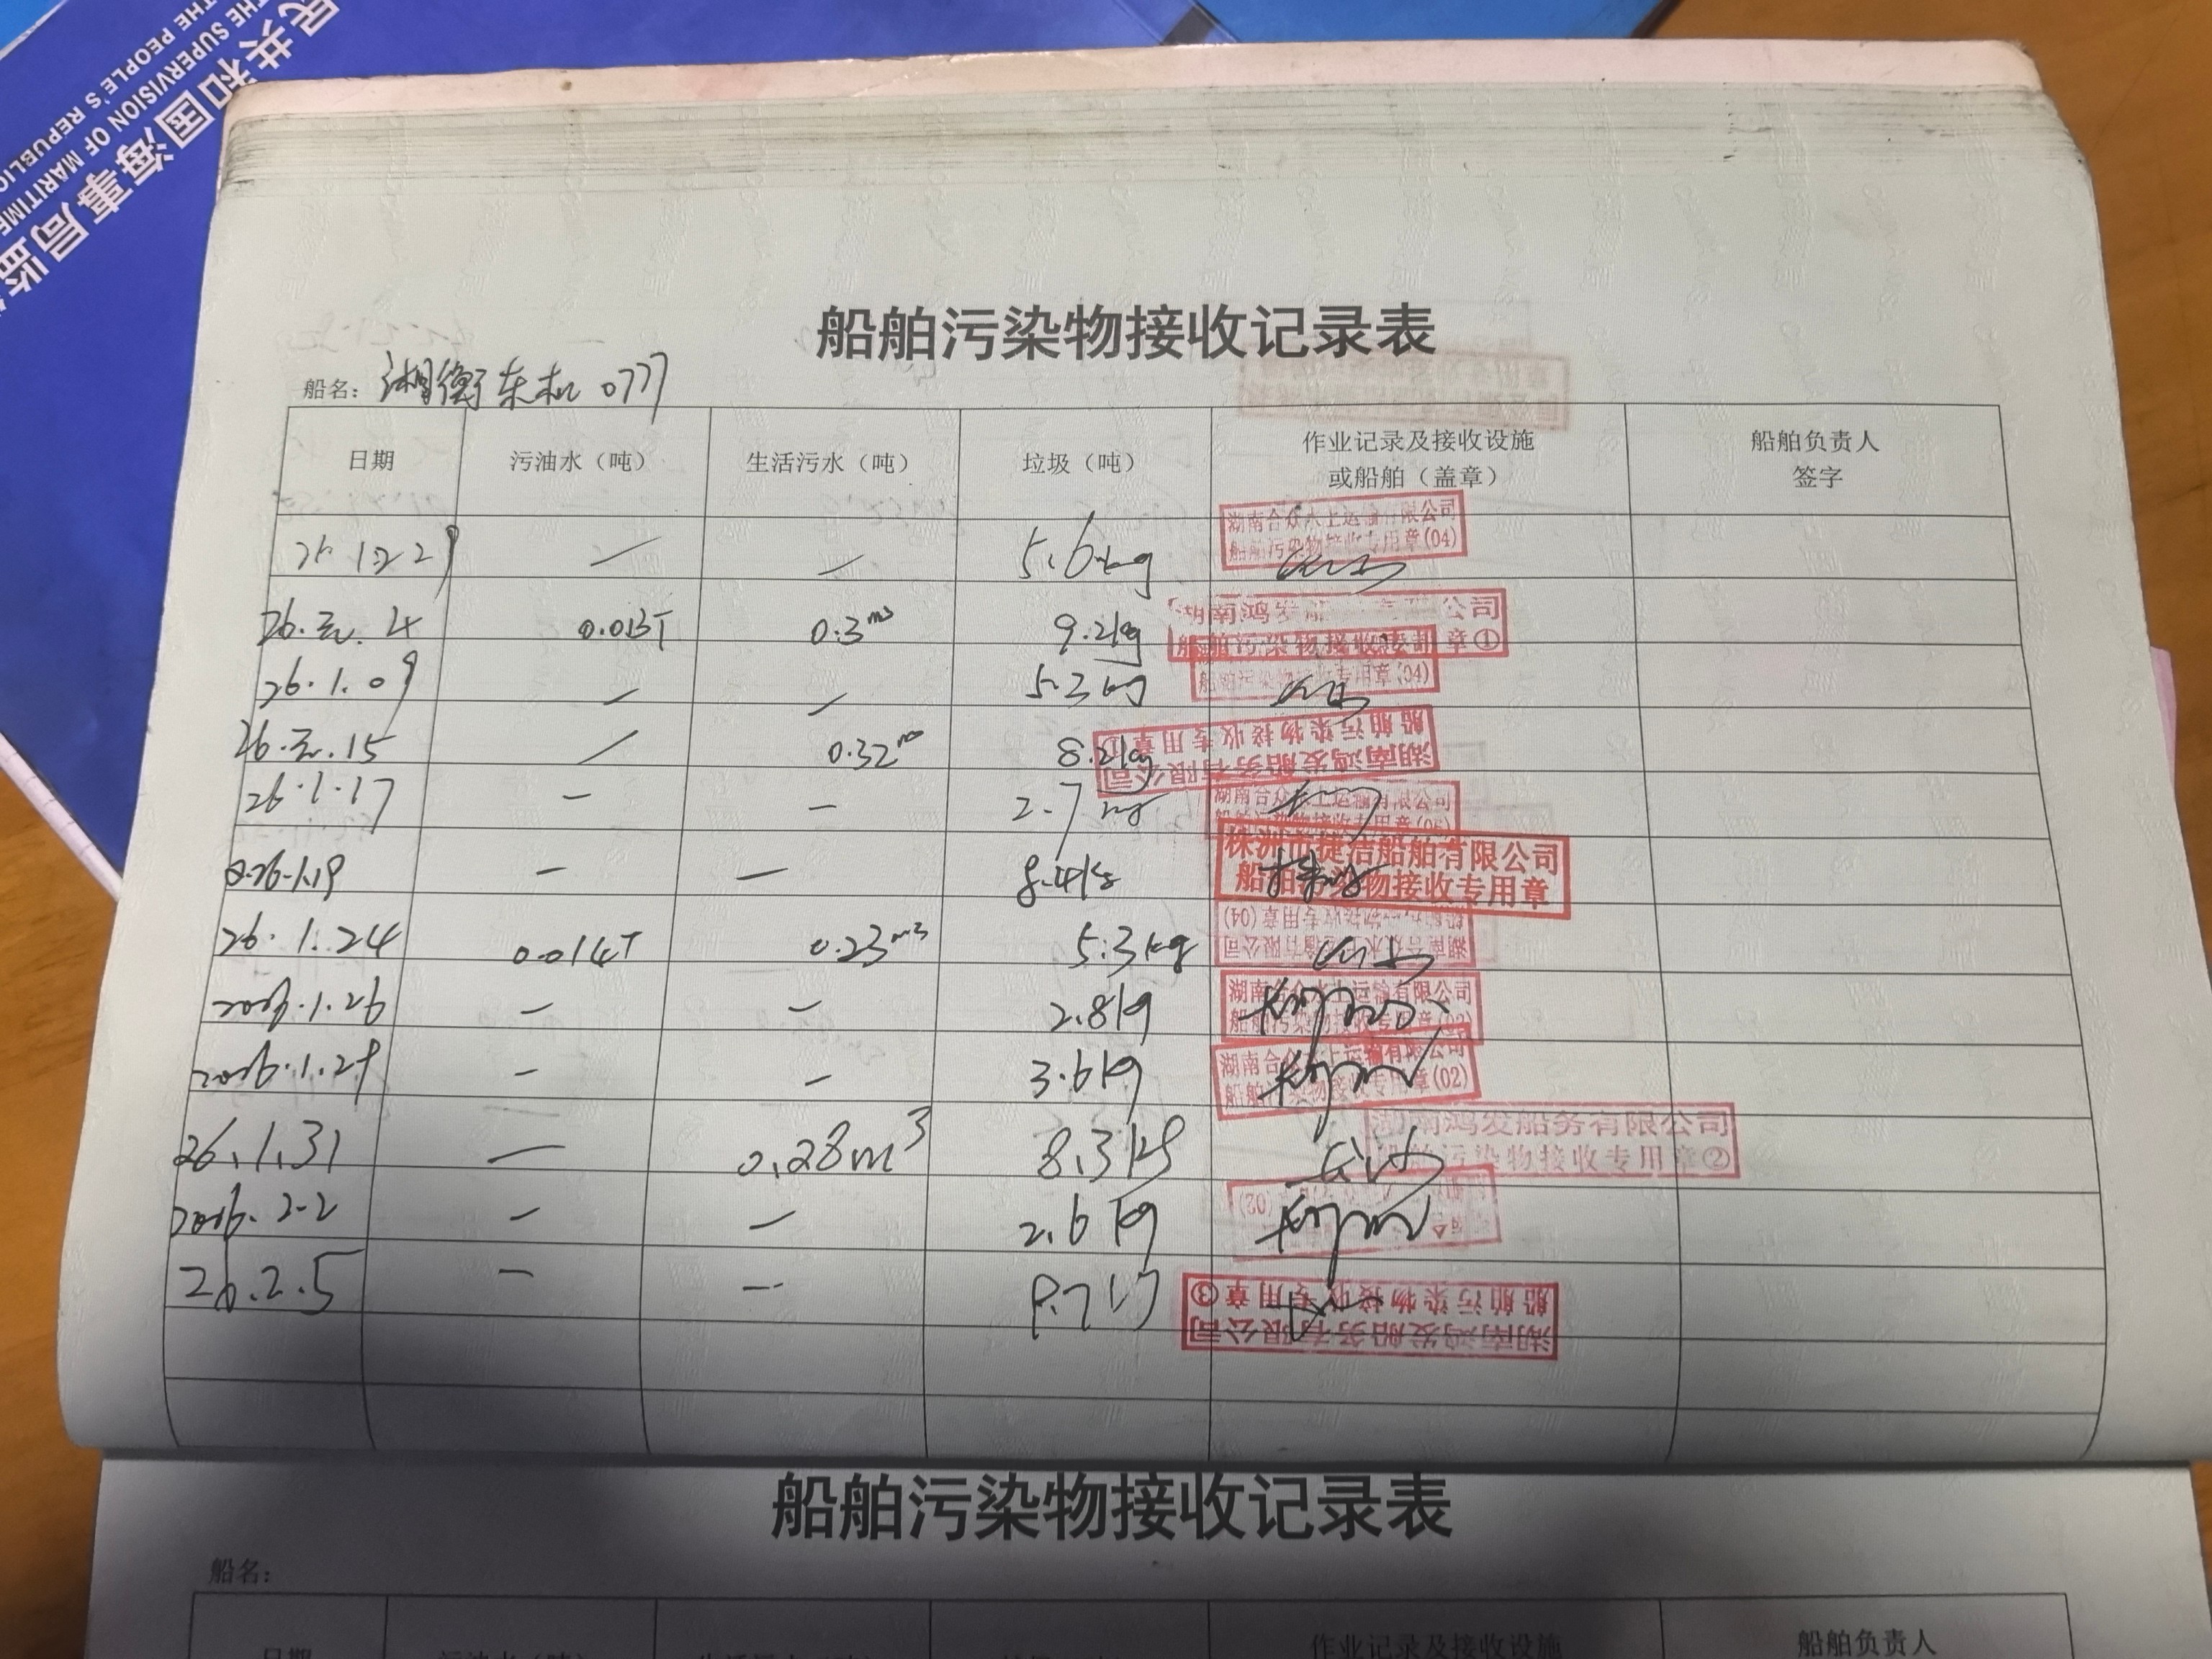 民共和国海事局监
THE SUPERVISION OF MARITIME
THE PEOPLE'S REPUBLIC
船舶污染物接收记录表
船名: 湘衡东机0777
日期 污油水（吨） 生活污水（吨） 垃圾（吨） 作业记录及接收设施或船舶（盖章） 船舶负责人签字
25.12.29 — — 5.6kg 湖南合众水上运输有限公司 船舶污染物接收专用章(04)
26.元.4 0.013T 0.3m3 9.2kg 湖南鸿发 公司 船舶污染物接收专用章①
26.1.09 — — 5.3kg 船舶污染物接收专用章(04)
26.元.15 — 0.32m 8.2kg 湖南鸿发船务有限公司 船舶污染物接收专用章①
26.1.17 — — 2.7kg 湖南合众水上运输有限公司
26.1.19 — — 8.4kg 株洲市捷洁船舶有限公司 船舶污染物接收专用章
26.1.24 0.014T 0.23m3 5.3kg 湖南合众水上运输有限公司 船舶污染物接收专用章(04)
2026.1.26 — — 2.8kg 湖南合众水上运输有限公司 船舶污染物接收专用章(02)
2026.1.29 — — 3.6kg 湖南合众水上运输有限公司 船舶污染物接收专用章(02)
26.1.31 — 0.28m3 8.3kg 湖南鸿发船务有限公司 船舶污染物接收专用章②
2026.2.2 — — 2.6kg (02)
26.2.5 — — 湖南鸿发船务有限公司 船舶污染物接收专用章③
船舶污染物接收记录表
船名:
日期 作业记录及接收设施 船舶负责人